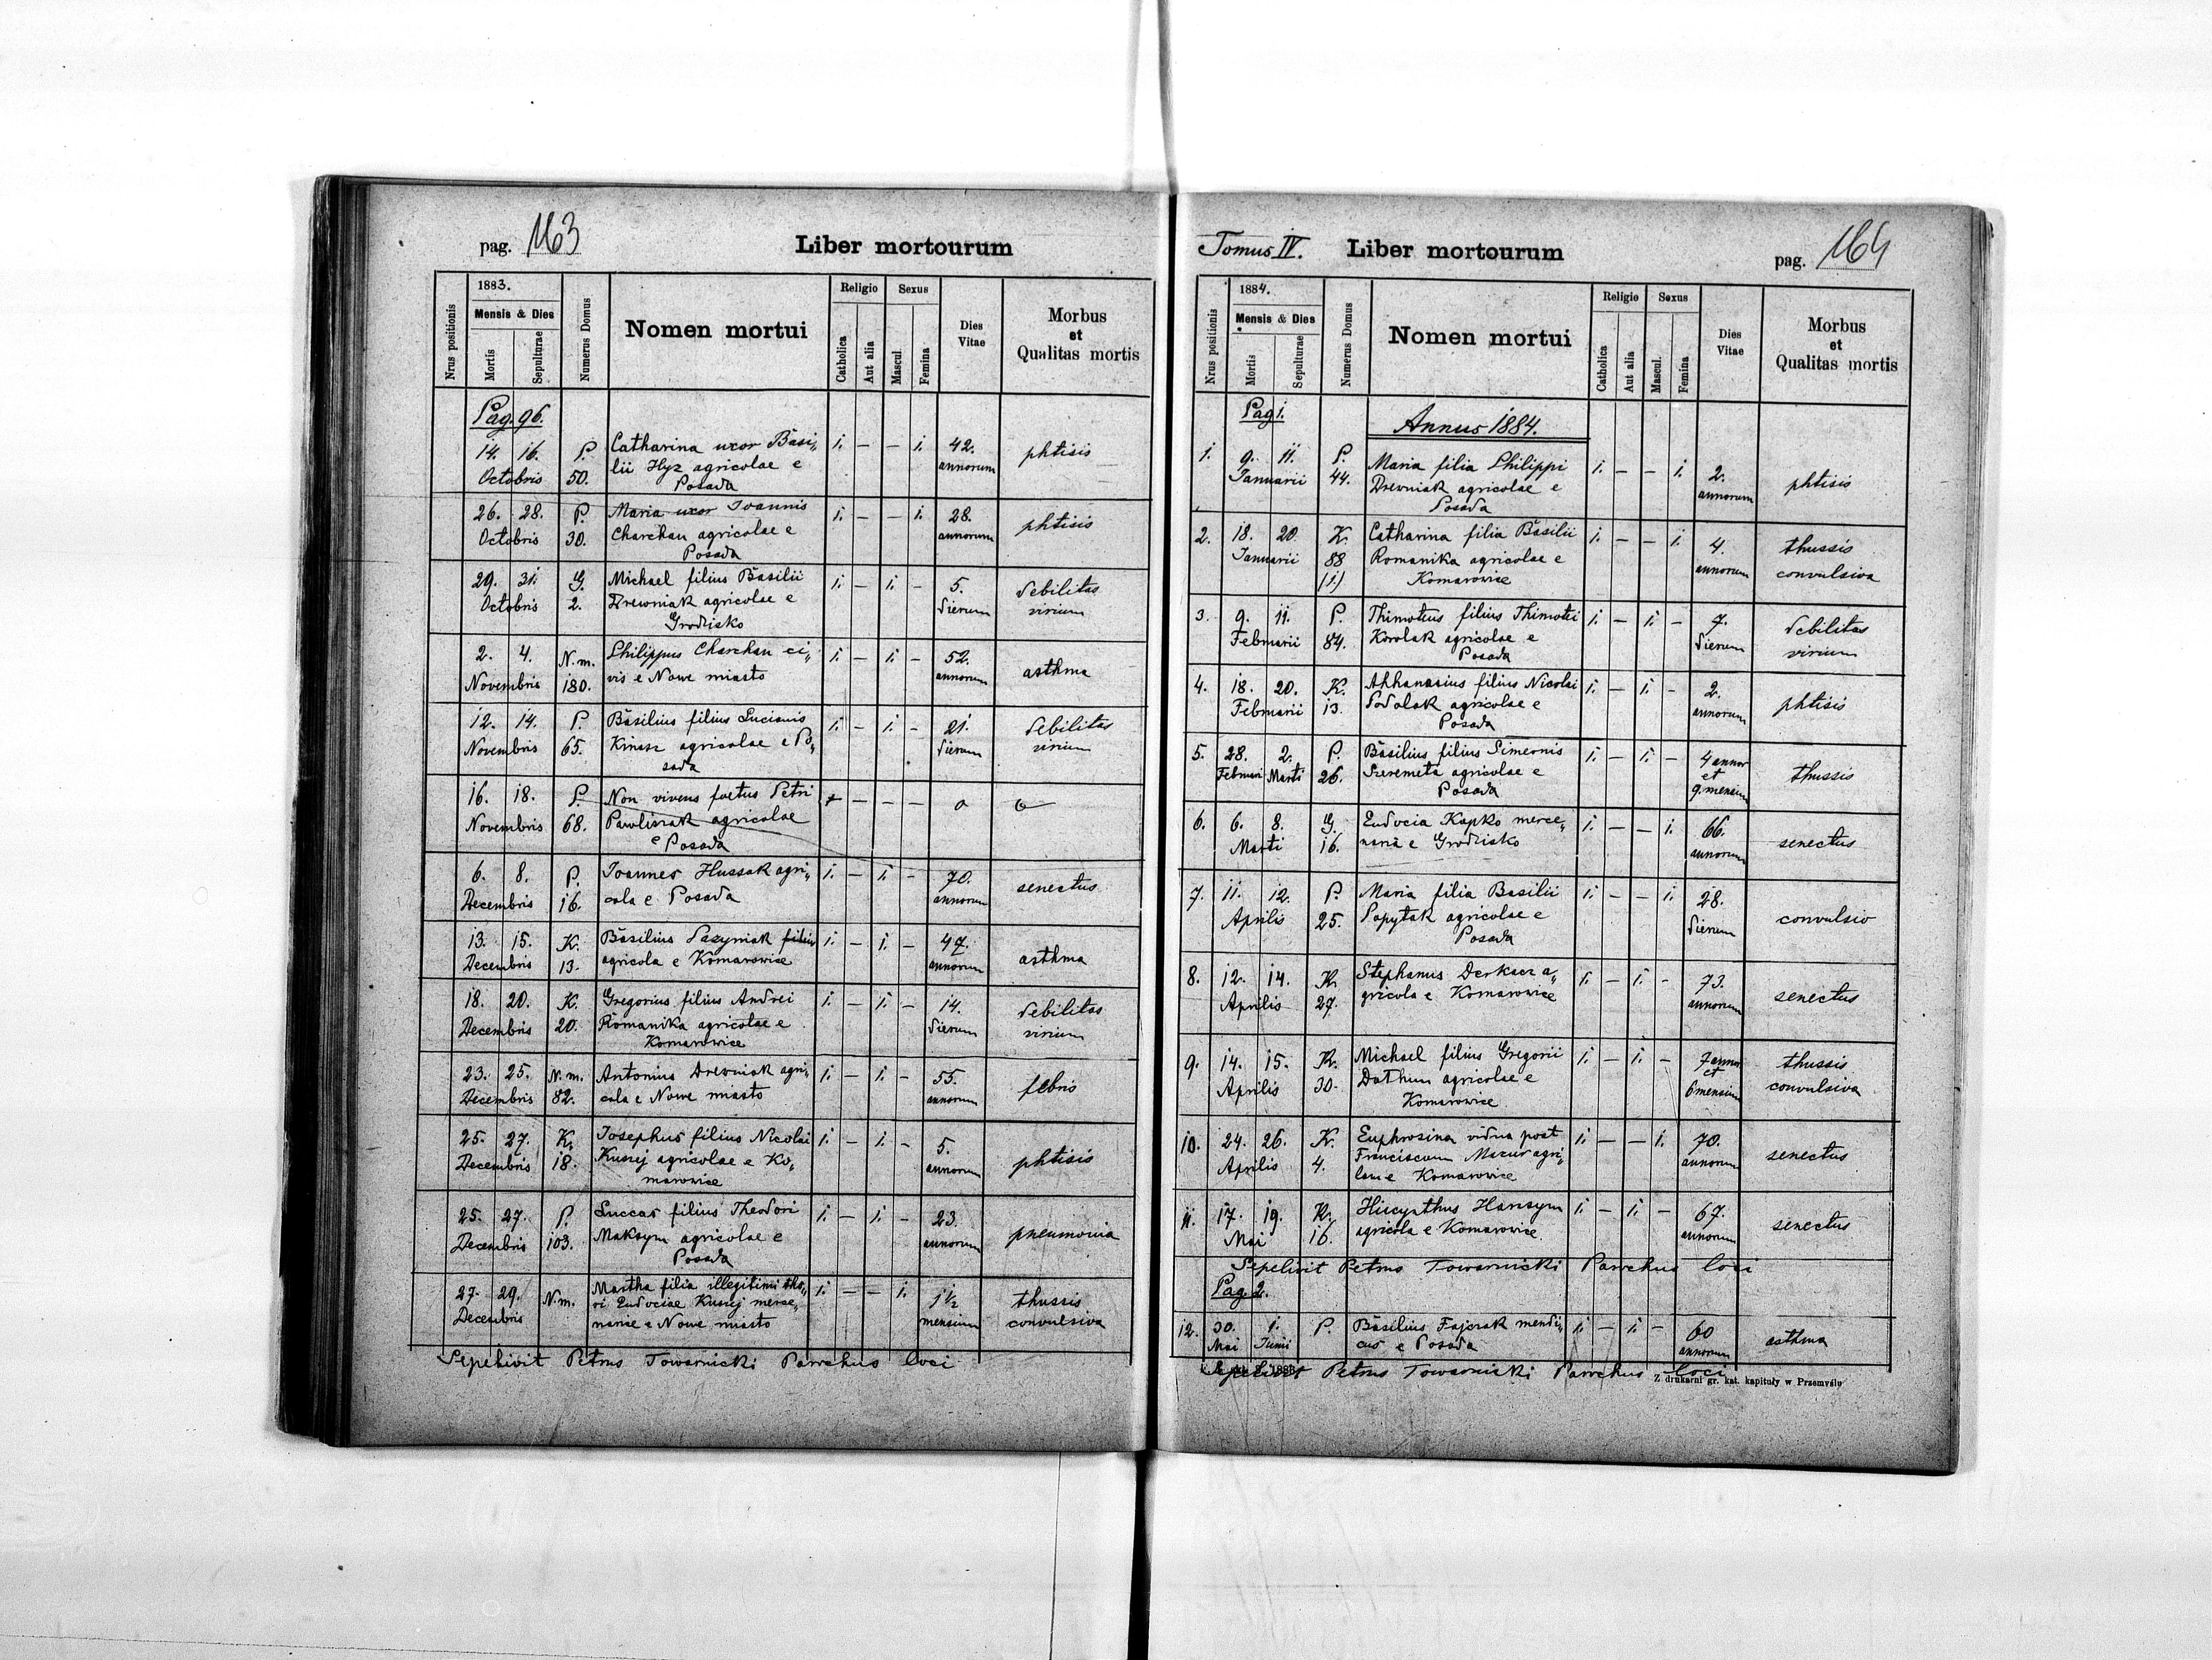 pag. 163 Liber mortourum
Nrus positionis
1883.
Mensis & Dies
Mortis
Sepulturae
Numerus Domus
Nomen mortui
Religio
Catholica
Aut alia
Sexus
Mascul.
Femina
Dies
Vitae
Morbus
et
Qualitas mortis
Pag. 96.
14. 16. P. Catharina uxor Basi„ 1. — — 1. 42. phtisis
Octobris 50. lii Hyz agricolae e annorum
Posada
26. 28. P. Maria uxor Ioannis 1. — — 1. 28. phtisis
Octobris 30. Charchan agricolae e annorum
Posada
29. 31. G. Michael filius Basilii 1. — 1. — 5. debilitas
Octobris 2. Drewniak agricolae e dierum virium
Grodzisko
2. 4. N.m. Philippus Charchan ci„ 1. — 1. — 52. asthma
Novembris 180. vis e Nowe miasto annorum
12. 14. P. Basilius filius Lucianis 1. — 1. — 21. debilitas
Novembris 65. Kinasz agricolae e Po„ dierum virium
sada
16. 18. P. Non vivens foetus Petri + — — — o o
Novembris 68. Pawliszak agricolae
e Posada
6. 8. P. Ioannes Hussak agri„ 1. — 1. — 70. senectus
Decembris 16. cola e Posada annorum
13. 15. K. Basilius Lazyniak filius 1. — 1. — 47. asthma
Decembris 13. agricola e Komarowice annorum
18. 20. K. Gregorius filius Andrei 1. — 1. — 14. debilitas
Decembris 20. Romanika agricolae e dierum virium
Komarowice
23. 25. N.m. Antonius Drewniak agri„ 1. — 1. — 55. febris
Decembris 82. cola e Nowe miasto annorum
25. 27. K. Iosephus filius Nicolai 1. — 1. — 5. phtisis
Decembris 18. Kuszej agricolae e Ko„ annorum
marowice
25. 27. P. Luccas filius Theodori 1. — 1. — 23. pneumonia
Decembris 103. Maksym agricolae e annorum
Posada
27. 29. N.m. Martha filia illegitimi tho„ 1. — — 1. 1½ thussis
Decembris ri Eudociae Kuszej merce„ mensium convulsiva
nariae e Nowe miasto
Sepelivit Petrus Towarnicki Parochus loci
Tomus IV. Liber mortourum pag. 164
Nrus positionis
1884.
Mensis & Dies
Mortis
Sepulturae
Numerus Domus
Nomen mortui
Religio
Catholica
Aut alia
Sexus
Mascul.
Femina
Dies
Vitae
Morbus
et
Qualitas mortis
Pag 1. Annus 1884.
1. 9. 11. P. Maria filia Philippi 1. — — 1. 2. phtisis
Ianuarii 44. Drewniak agricolae e annorum
Posada
2. 18. 20. K. Catharina filia Basilii 1. — — 1. 4. thussis
Ianuarii 88 Romanika agricolae e annorum convulsiva
(1) Komarowice
3. 9. 11. P. Thimoteus filius Thimotei 1. — 1. — 7. debilitas
Februarii 84. Korolak agricolae e dierum virium
Posada
4. 18. 20. K. Athanasius filius Nicolai 1. — 1. — 2. phtisis
Februarii 13. Podolak agricolae e annorum
Posada
5. 28. 2. P. Basilius filius Simeonis 1. — 1. — 4 annor thussis
Februari Marti 26. Szeremeta agricolae e et
Posada 9. mensium
6. 6. 8. G. Eudocia Kapko merce„ 1. — — 1. 66. senectus
Marti 16. naria e Grodzisko annorum
7. 11. 12. P. Maria filia Basilii 1. — — 1. 28. convulsio
Aprilis 25. Popytak agricolae e dierum
Posada
8. 12. 14. K. Stephanus Derkacz a„ 1. — 1. — 73. senectus
Aprilis 27. gricola e Komarowice annorum
9. 14. 15. K. Michael filius Gregorii 1. — 1. — 7 annor thussis
Aprilis 30. Dathun agricolae e et convulsiva
Komarowice 6 mensium
10. 24. 26. K. Euphrosina vidua post 1. — — 1. 70. senectus
Aprilis 4. Franciscum Mazur agri„ annorum
lam e Komarowice
11. 17. 19. K. Hiacynthus Harasym 1. — 1. — 67. senectus
Mai 16. agricola e Komarowice annorum
Sepelivit Petrus Towarnicki Parochus loci
Pag. 2.
12. 30. 1. P. Basilius Fajczak mendi„ 1. — 1. — 60 asthma
Mai Iunii cus e Posada annorum
Sepelivit Petrus Towarnicki Parochus loci
Z drukarni gr. kat. kapituły w Przemyślu